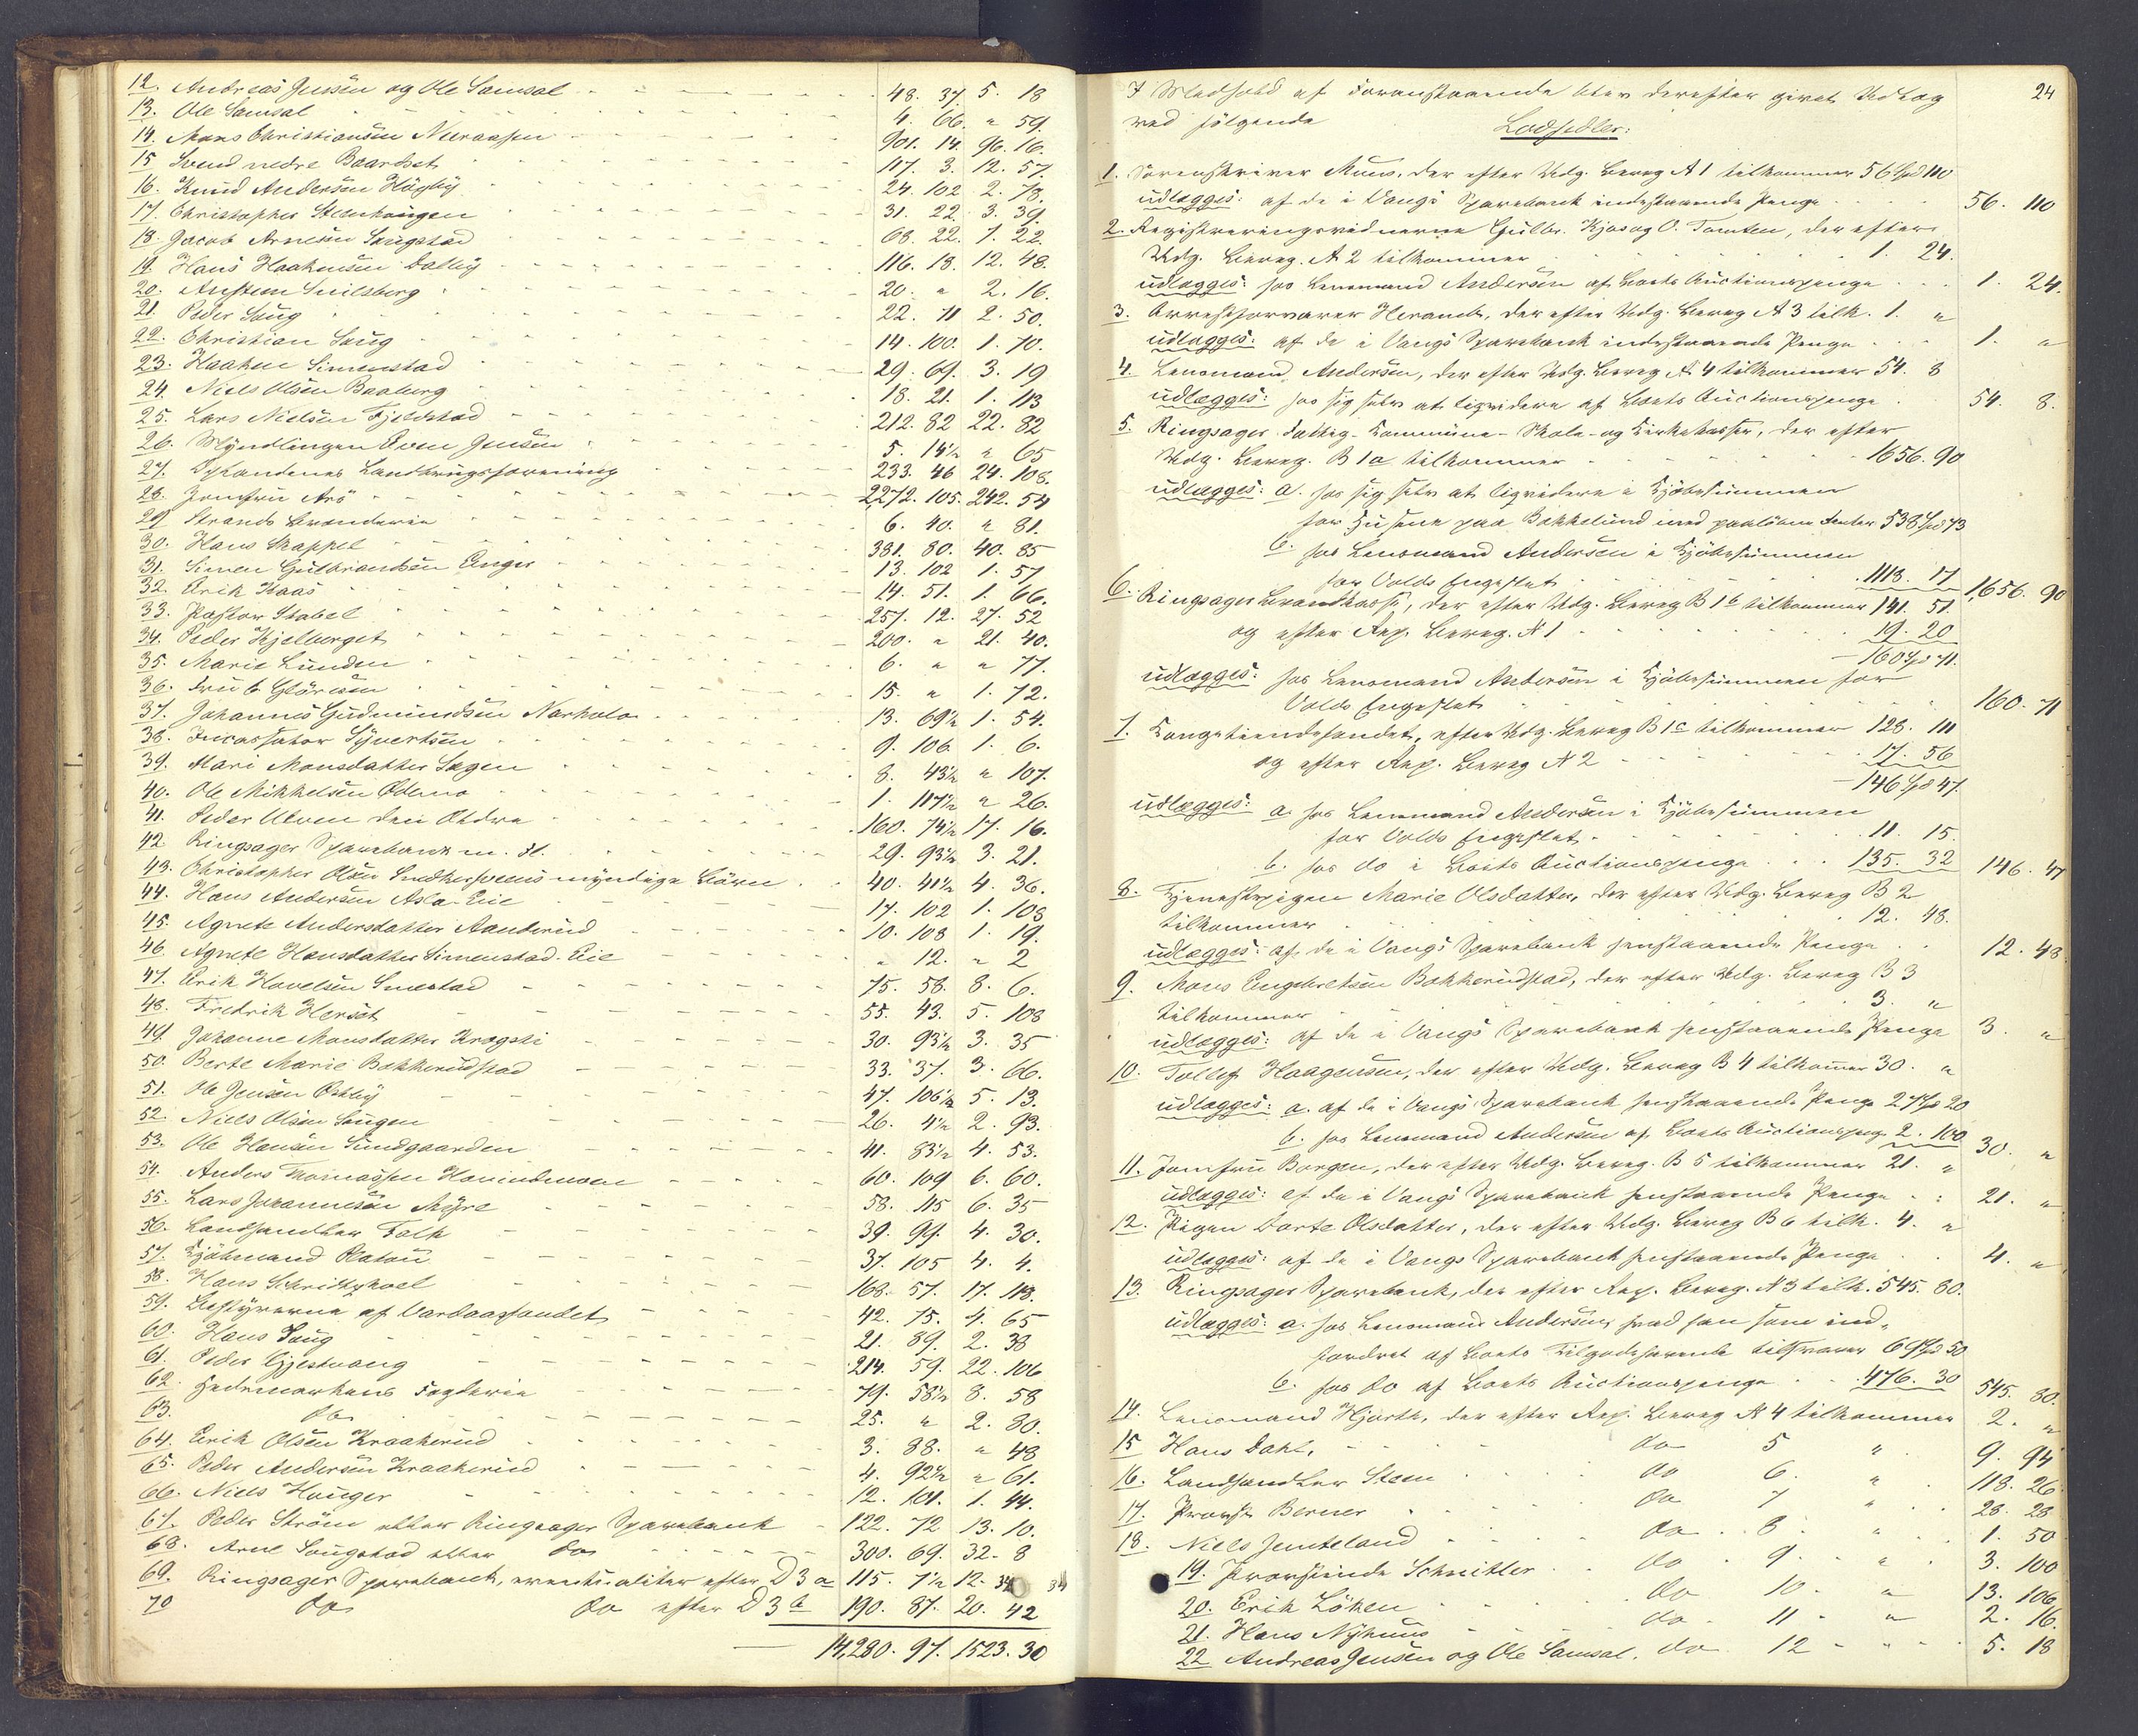 12. Andreas Jensen og Ole Samsal 48. 37. 5. 18
13. Ole Samsal 4. 66. " 59.
14. Mons Christiansen Nuraasen 901. 14. 96. 16.
15 Svend nedre Baardset 117. 3. 12. 57.
16. Knud Andersen Högby 24. 102 2. 78.
17. Christopher Stenhaugen 31. 22. 3. 39.
18. Jacob Arnesen Saugstad 68. 22. 7. 22.
19. Hans Haakensen Dalby 116. 18. 12. 48.
20. Anstein Snilsberg 20. " 2. 16.
21. Peder Saug 22. 71 2. 50.
22. Christian Saug 14. 100. 1. 70.
23. Haaken Simenstad 29. 69. 3. 19
24. Niels Olsen Baaberg 18. 21. 1. 113
25. Lars Nielsen Fjeldstad 212. 82 22. 82
26. Myndlingen Even Jensen 5. 14½ " 65
27. Oplandenes Landbrugsforening 233. 46 24. 108.
28. Jomfru Arö 2272. 105. 242. 54
29 Strands Brænderie 6. 40. " 81.
30. Hans Skappel 381. 80. 40. 85
31. Simen Gulbrandsen Enger 13. 102 1. 57
32. Erik Haas 14. 51. 1. 66.
33. Pastor Stabel 257. 12. 27. 52
34. Peder Kjelberget 200. " 21. 40.
35. Marie Lunden 6. " " 77.
36. Fru C. Glörsen 15. " 1. 72.
37. Johannes Gudmundsen Narholo 13. 69½ 1. 54.
38. Incassator Syvertsen 9. 106 1. 6.
39. Mari Monsdatter Sagen 8. 43½ " 107.
40. Ole Mikkelsen Ödemo 1. 117½ " 26.
41. Peder Ulven den Ældre 160. 74½ 17. 16.
42 Ringsager Sparebank m. fl. 29. 93½ 3. 21.
43. Christopher Olsen Snedkersveens myndige Börn 40. 41½ 4. 36.
44. Hans Andersen Asla-Eie 17. 102 1. 108
45. Agnete Andersdatter Aanderud 10. 108 1. 19.
46. Agnete Hansdatter Simenstad-Eie " 12. " 2
47. Erik Havelsen Smestad 75. 58. 8. 6.
48. Fredrik Herset 55. 43. 5. 108
49. Johanne Monsdatter Kragsti 30. 93½ 3. 35
50. Berte Marie Bakkerudstad 33. 37. 3. 66.
51. Ole Jensen Östby 47. 106½ 5. 13.
52. Niels Olsen Saugen 26. 4½ 2. 93.
53. Ole Hansen Sundgaarden 41. 83½ 4. 53.
54. Anders Thomassen 60. 109 6. 60.
55. Lars Johannesen Myre 58. 115 6. 35
56. Landhandler Falk 39. 99. 4. 30.
57. Kjöbmand Platou 37. 105 4. 4.
58. Hans 168. 57. 17. 118.
59. Bestyrerne af Vardaasfondet 42. 75. 4. 65
60. Hans Saug 21. 89. 2. 38
61. Peder Gjestvang 214. 59. 22. 106
62 Hedemarkens Fogderie 79. 58½ 8. 58
63. do 25. " 2. 80.
64. Erik Olsen Kraakerud 3. 88. " 48
65. Peder Andersen Kraakerud 4. 92½ " 61.
66. Niels Hauger 12. 101. 1. 44.
67. Peder Ström eller Ringsager Sparebank 122. 72 13. 10.
68. Arne Saugstad eller do 300. 69. 32. 8
69. Ringsager Sparebank, eventualiter efter D 3 a 115. 7½ 12. 34
70 do do efter D 3 b 190. 87. 20. 42
14,280. 97. 1523. 30
24
I Medhold af Foranstaaende blev derefter givet Udlæg
ved fölgende Lodsedler:
1. Sorenskriver Muus, der efter Udg. Bevg. A 1 tilkommer 56 Spd 110
udlægges: af de i Vangs Sparebank indestaaende Penge 56. 110
2. Registreringsvidnerne Gulbr. Kjos og O. Tomten, der efter
Udg. Bevg. A 2 tilkommer 1. 24.
udlægges: hos Lensmand Andersen af Boets Auctionspenge 1. 24.
3. Arrestforvarer Herand, der efter Udg. Bevg. A 3 tilk. 1. "
udlægges: af de i Vangs Sparebank indestaaende Penge 1. "
4. Lensmand Andersen, der efter Udg. Bevg. A 4 tilkommer 54. 8
udlægges: hos sig selv at liqvidere af Boets Auctionspenge 54. 8.
5. Ringsager Fattig-Commune-Skole- og Kirkekasse, der efter
Udg. Bevg. B 1 a tilkommer 1656. 90
udlægges: a. hos sig selv at liqvidere i Kjöbesummen
for Husene paa Bakkelund med paalöbne Renter 538 Spd 73
b. hos Lensmand Andersen i Kjöbesummen
for Volds Engeslet 1118. 17 1,656. 90
6. Ringsager Brandkasse, der efter Udg. Bevg. B 1 b tilkommer 141. 51.
og efter Rep. Bevg. N 1 19. 20
160 Spd 71.
udlægges: hos Lensmand Andersen i Kjöbesummen for
Volds Engeslet 160. 71
7. Kongetiendefondet, efter Udg. Bevg. B 1 c tilkommer 128. 111
og efter Rep. Bevg. N 2 17. 56
146 Spd 47.
udlægges: a. hos Lensmand Andersen i Kjöbesummen
for Volds Engeslet 11. 15.
b. hos do i Boets Auctionspenge 135. 32 146. 47
8. Tjenestepigen Marie Olsdatter, der efter Udg. Bevg. B 2
tilkommer 12. 48.
udlægges: af de i Vangs Sparebank henstaaende Penge 12. 48
9. Mons Engebretsen Bakkerudstad, der efter Udg. Bevg. B 3
tilkommer 3. "
udlægges: af de i Vangs Sparebank henstaaende Penge 3. "
10. Tollef Haagensen, der efter Udg. Bevg. B 4 tilkommer 30. "
udlægges: a. af de i Vangs Sparebank henstaaende Penge 27 Spd 20
b. hos Lensmand Andersen af Boets Auctionspenge 2. 100 30. "
11. Jomfru Borgen, der efter Udg. Bevg. B 5 tilkommer 21. "
udlægges: af de i Vangs Sparebank henstaaende Penge 21. "
12. Pigen Dorte Olsdatter, der efter Udg. Bevg. B 6 tilk. 4. "
udlægges: af de i Vangs Sparebank henstaaende Penge 4. "
13. Ringsager Sparebank, der efter Rep. Bevg. N 3 tilk. 545. 80.
udlægges: a. hos Lensmand Andersen, hvad han som ind-
fordret af Boets Tilgodehavende tilsvarer 69 Spd 50
b. hos do af Boets Auctionspenge 476. 30 545. 80.
14. Lensmand Hjorth, der efter Rep. Bevg. N 4 tilkommer 2. "
15 Hans Dahl, do 5 " 9. 94
16. Landhandler Steen do 6. " 118. 26
17. Provst Berner do 7 " 28. 28
18. Niels Jemteland do 8 " 1. 50
19. Proviserinde Schnitler do 9. " 3. 100
20. Erik Löken do 10. " 13. 106
21. Hans Nyhuus do 11 " 2. 16.
22 Andreas Jensen og Ole Samsal. do 12 " 5. 18